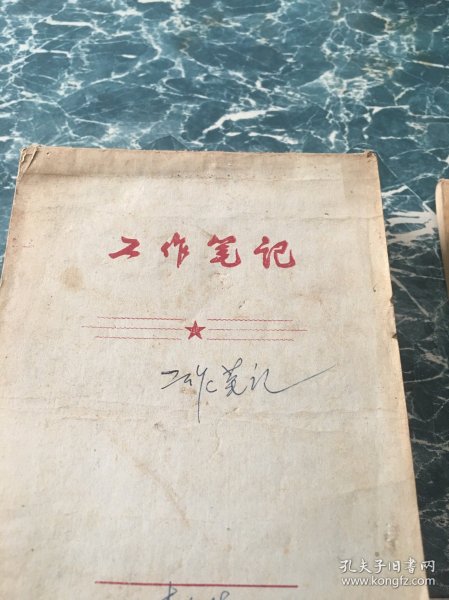 工作笔记
工作笔记
孔夫子旧书网
www.kongfz.com